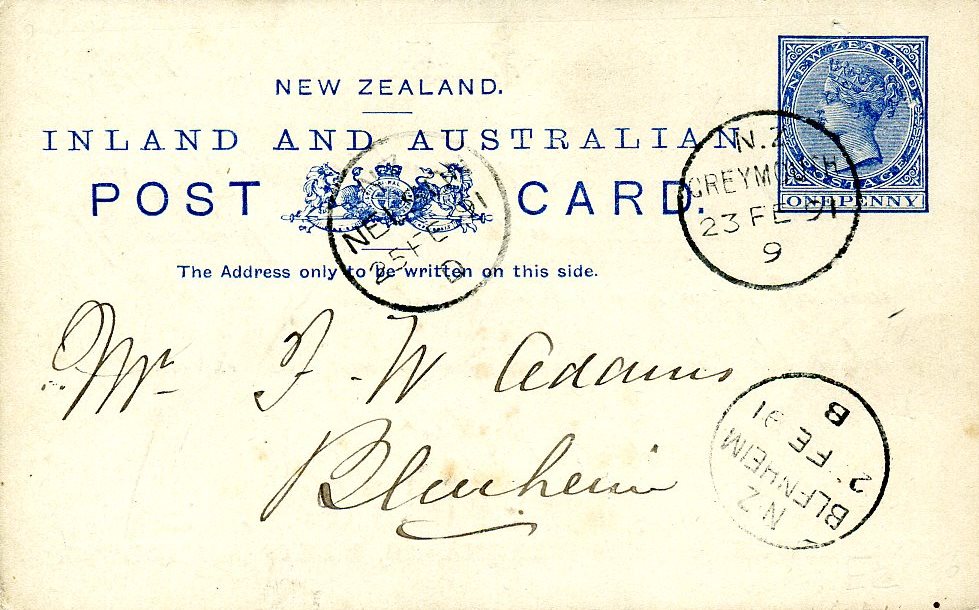 NEW ZEALAND.
INLAND AND AUSTRALIAN
POST CARD.
The Address only to be written on this side.
NEW ZEALAND
POSTAGE
ONE PENNY
N.Z
GREYMOUTH
23 FE 91
9
NZ
NELSON
25 FE 91
D
Mr J. W Adams
Blenheim
NZ
BLENHEIM
FE 91
B